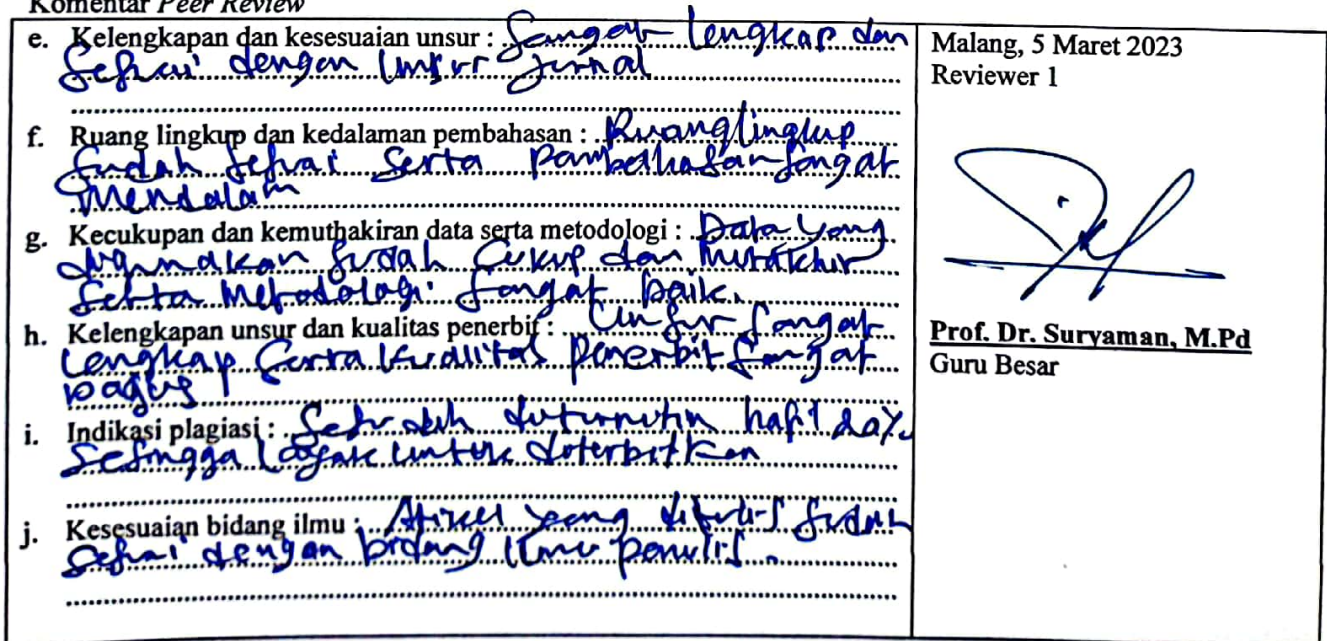 Komentar Peer Review
e. Kelengkapan dan kesesuaian unsur : Sangat lengkap dan
sesuai dengan unsur jurnal
f. Ruang lingkup dan kedalaman pembahasan : Ruang lingkup
sudah sesuai serta pembahasan sangat
mendalam
g. Kecukupan dan kemuthakiran data serta metodologi : Data yang
digunakan sudah cukup dan mutakhir
serta metodologi sangat baik.
h. Kelengkapan unsur dan kualitas penerbit : Unsur sangat
lengkap serta kualitas penerbit sangat
bagus
i. Indikasi plagiasi : Setelah diturnitin hasil
sehingga layak untuk diterbitkan
j. Kesesuaian bidang ilmu : Artikel yang ditulis sudah
sesuai dengan bidang ilmu penulis.
Malang, 5 Maret 2023
Reviewer 1
Prof. Dr. Suryaman, M.Pd
Guru Besar